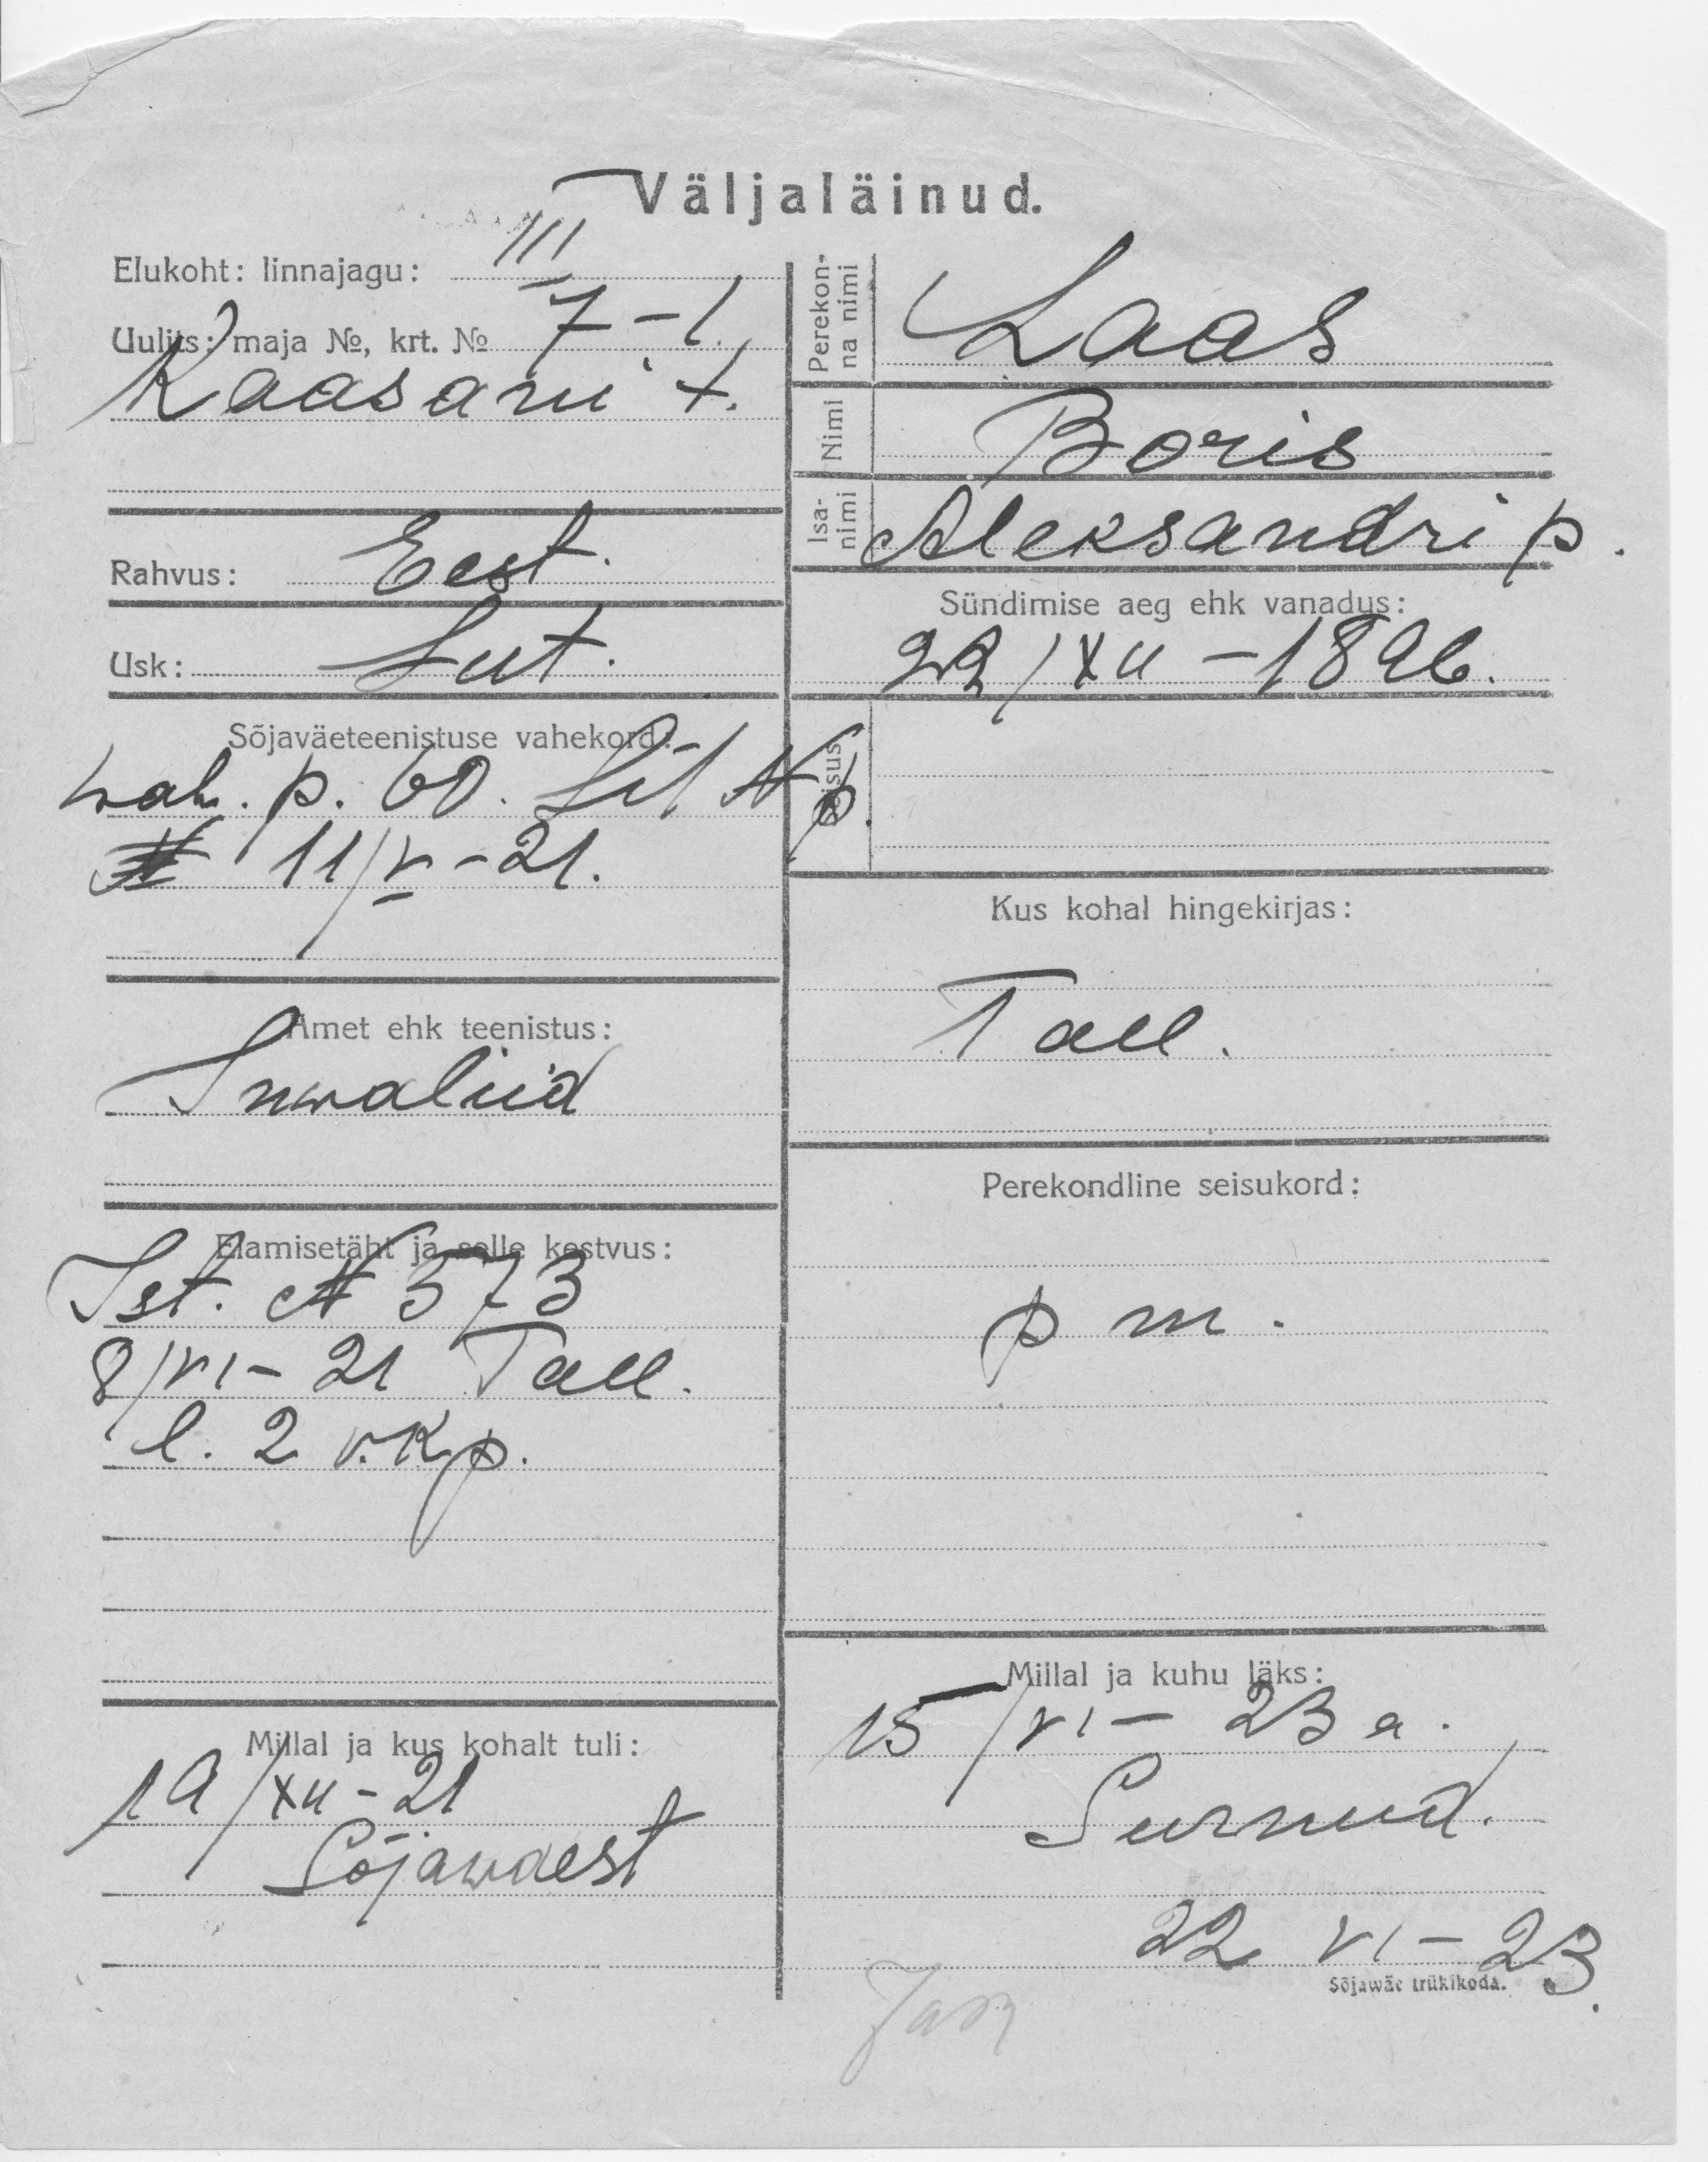 Väljaläinud.
Elukoht: linnajagu: III
Uulits, maja №, krt. № 7-1.
Kaasani t.
Rahvus: Eest.
Usk: Lut.
Sõjaväeteenistuse vahekord:
wab. p. 60. Lit N
11/V-21.
Amet ehk teenistus:
Inwaliid
Elamisetäht ja selle kestvus:
Ist. N 573
8/VI-21 Tall.
l. 2 v.Kp.
Millal ja kus kohalt tuli:
19/XII-21
Sõjawaest
Perekonna nimi
Laas
Nimi
Boris
Isanimi
Aleksandri p.
Sündimise aeg ehk vanadus:
22/XII-1896.
Seisus
Kus kohal hingekirjas:
Tall.
Perekondline seisukord:
p m.
Millal ja kuhu läks:
15/VI-23 a.
Surnud.
22 VI-23.
Sõjawäe trükikoda.